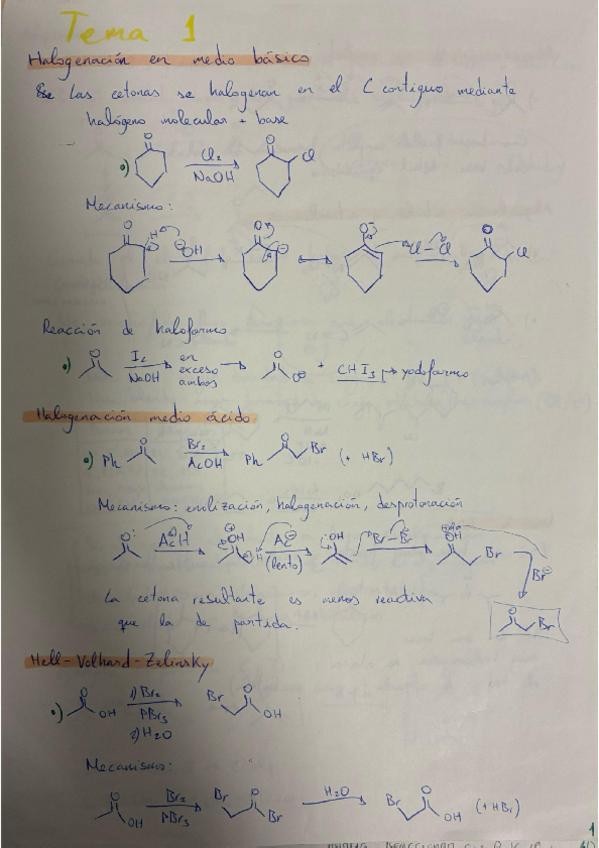 Tema 1
Halogenación en medio básico
Las cetonas se halogenan en el C contiguo mediante
halógeno molecular + base
O O Cl
Cl2
NaOH
Mecanismo:
O H ⊖OH O ⊖ O⊖ Cl-Cl O Cl
Reacción de haloformo
O I2 en O
NaOH exceso O⊖ + CHI3 → yodoformo
ambos
Halogenación medio ácido
O Br2 O
Ph AcOH Ph Br (+ HBr)
Mecanismo: enolización, halogenación, desprotonación
O AcH ⊕OH H Ac⊖ OH Br-Br ⊕OH Br
(lento) Br⊖
La cetona resultante es menos reactiva
que la de partida.
O Br
Hell-Volhard-Zelinsky
O OH 1) Br2 Br O OH
PBr3
2) H2O
Mecanismo:
O OH Br2 Br O Br H2O Br O OH (+HBr)
PBr3
1